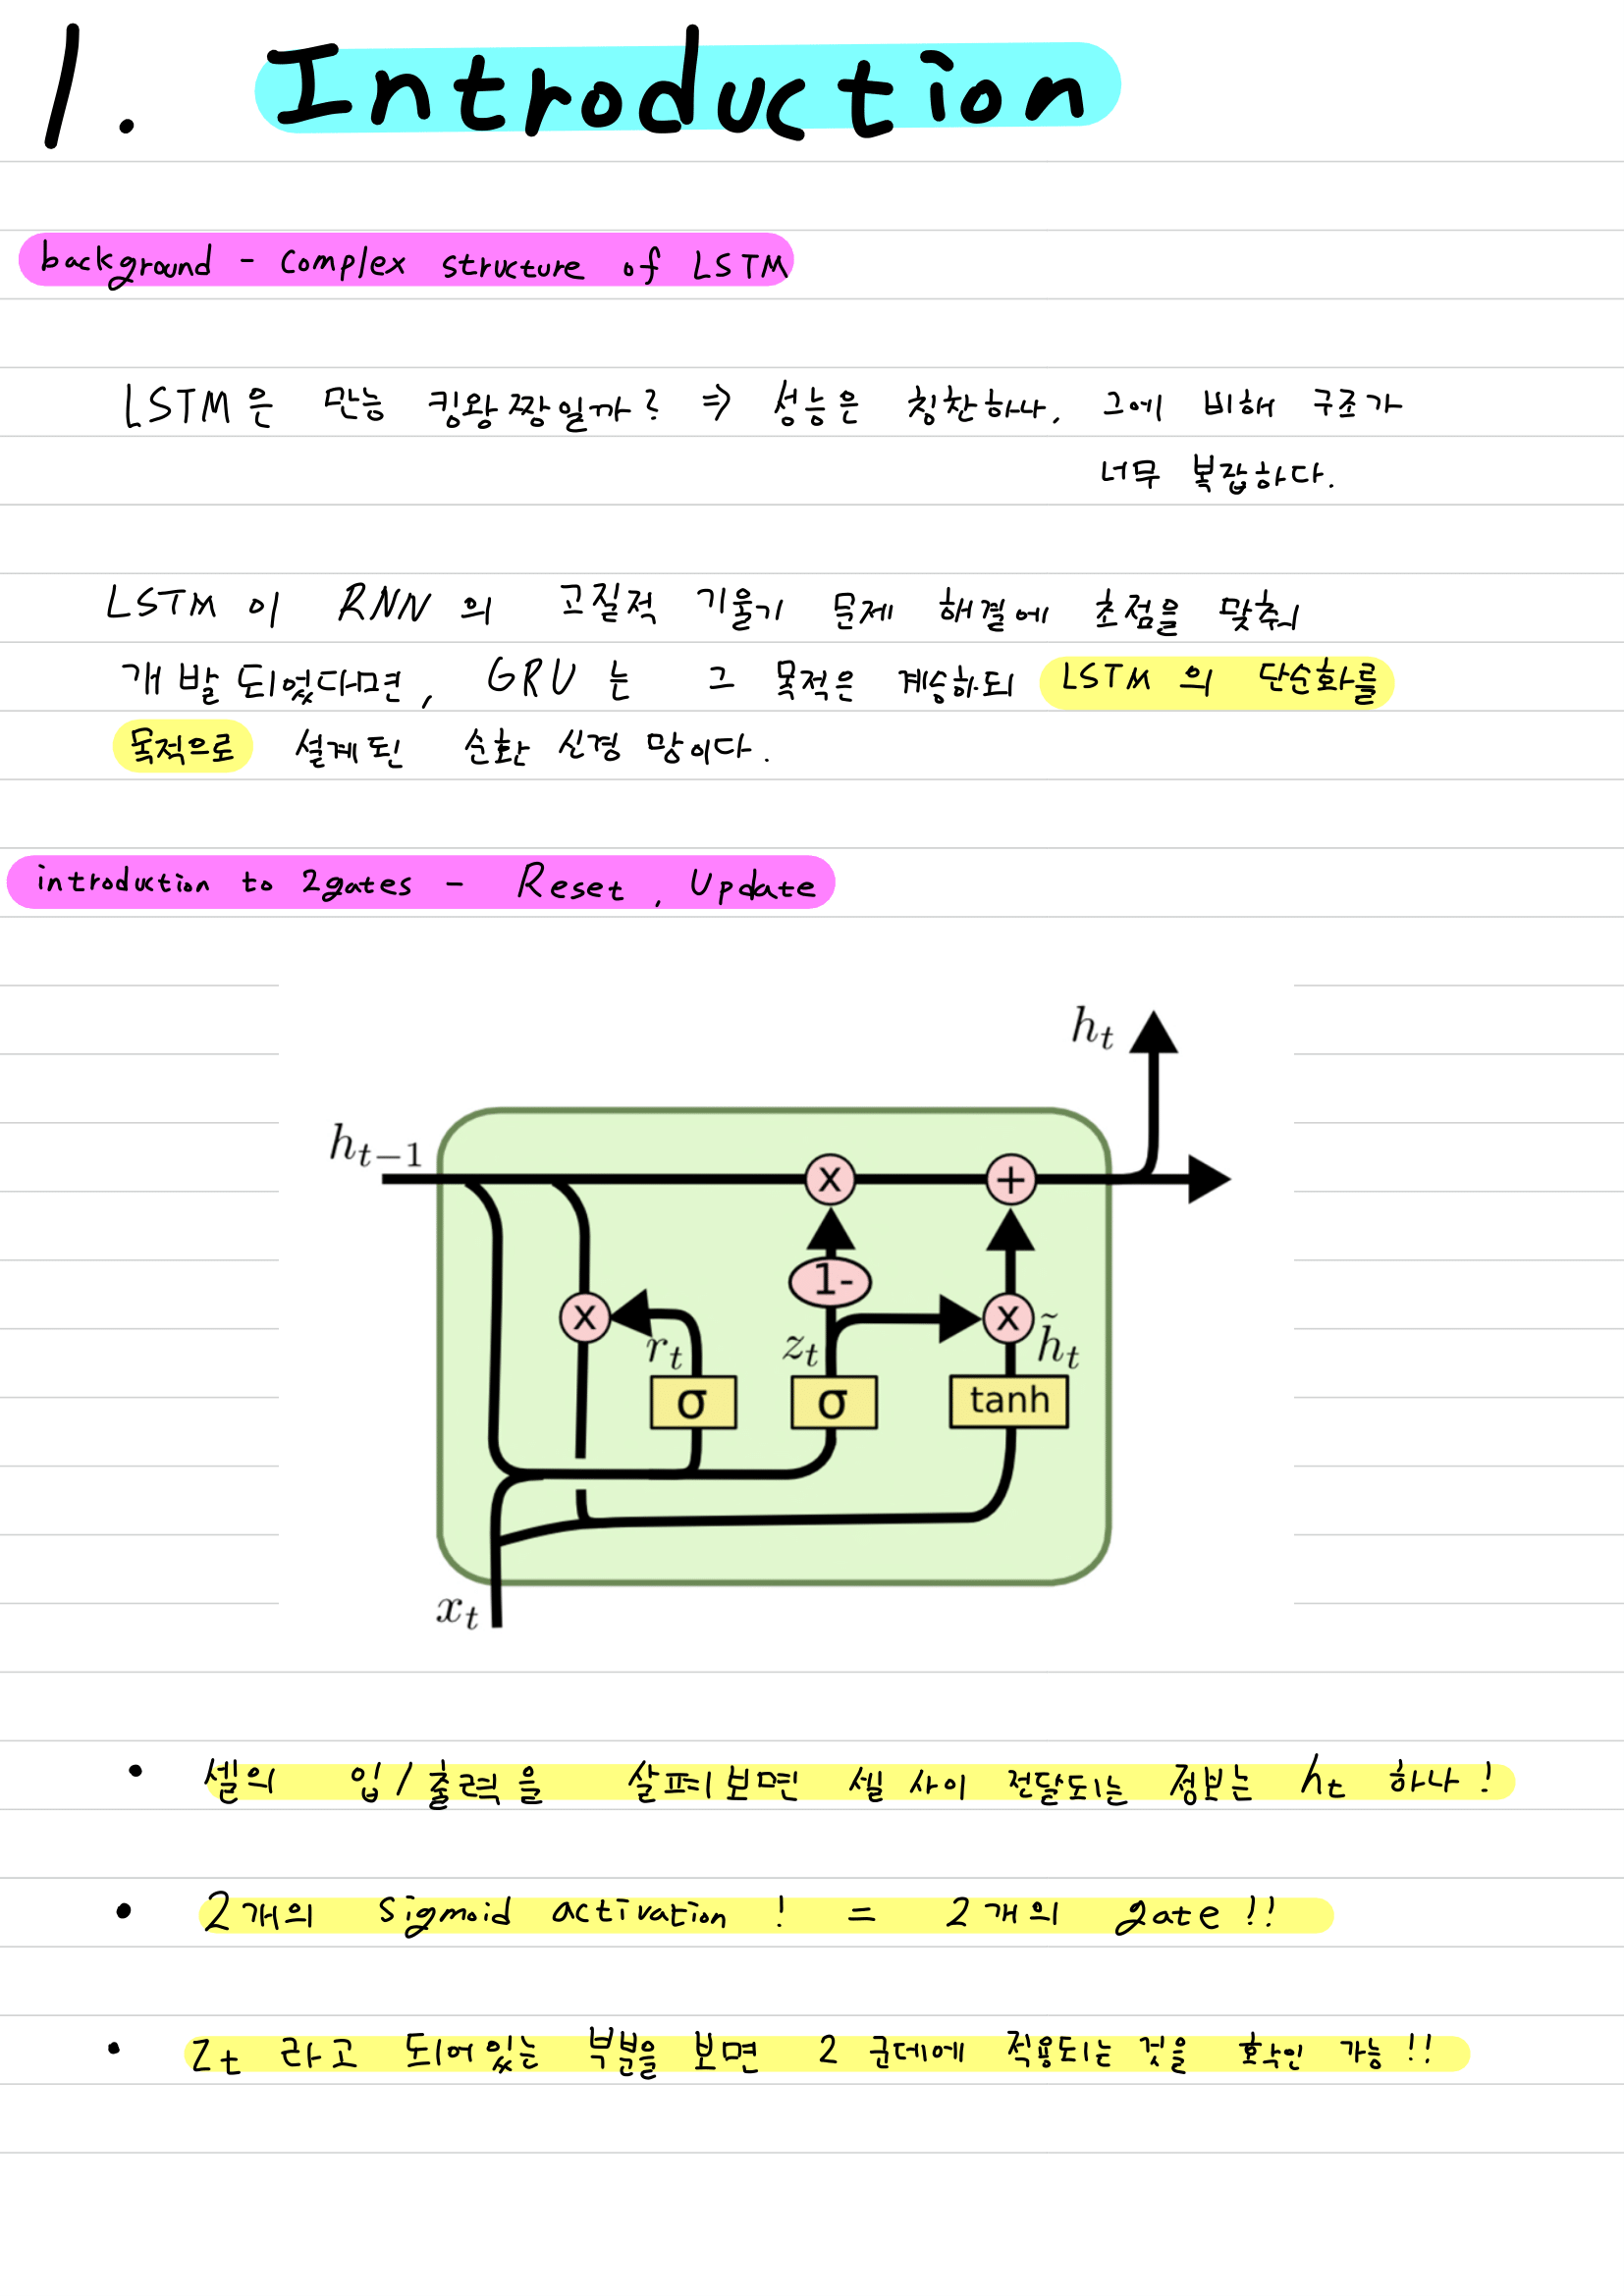 1. Introduction
background - complex structure of LSTM
LSTM은 만능 킹왕짱일까? ⇒ 성능은 칭찬하나, 그에 비해 구조가
너무 복잡하다.
LSTM이 RNN의 고질적 기울기 문제 해결에 초점을 맞춰
개발되었다면, GRU는 그 목적은 계승하되 LSTM의 단순화를
목적으로 설계된 순환 신경망이다.
introduction to 2gates - Reset, Update
h_t
h_{t-1}
x +
1-
x r_t z_t x h̃_t
σ σ tanh
x_t
• 셀의 입/출력을 살펴보면 셀 사이 전달되는 정보는 h_t 하나!
• 2개의 sigmoid activation! = 2개의 gate!!
• Z_t 라고 되어있는 부분을 보면 2군데에 적용되는 것을 확인 가능!!